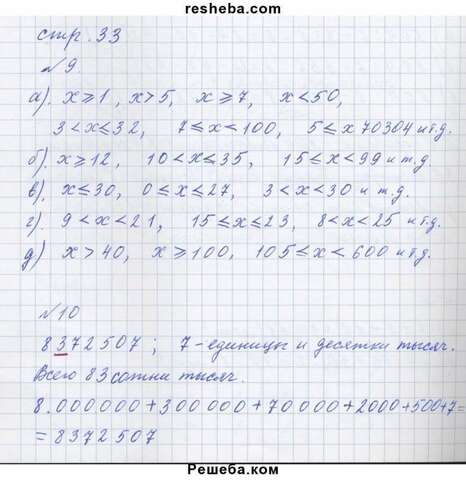 resheba.com
стр. 33
№9
а). x ⩾ 1, x > 5, x ⩾ 7, x < 50,
3 < x ≤ 32, 7 ≤ x < 100, 5 ≤ x 70304 и т.д.
б). x ⩾ 12, 10 < x ≤ 35, 15 ≤ x < 99 и т.д
в). x ≤ 30, 0 ≤ x ≤ 27, 3 < x < 30 и т.д.
г). 9 < x < 21, 15 ≤ x ≤ 23, 8 < x < 25 и т.д.
д) x > 40, x ⩾ 100, 105 ≤ x < 600 и т.д.
№10
8372507; 7 - единицы и десятки тысяч.
Всего 83 сотни тысяч.
8.000000 + 300000 + 70000 + 2000 + 500 + 7 =
= 8372507
Решеба.ком